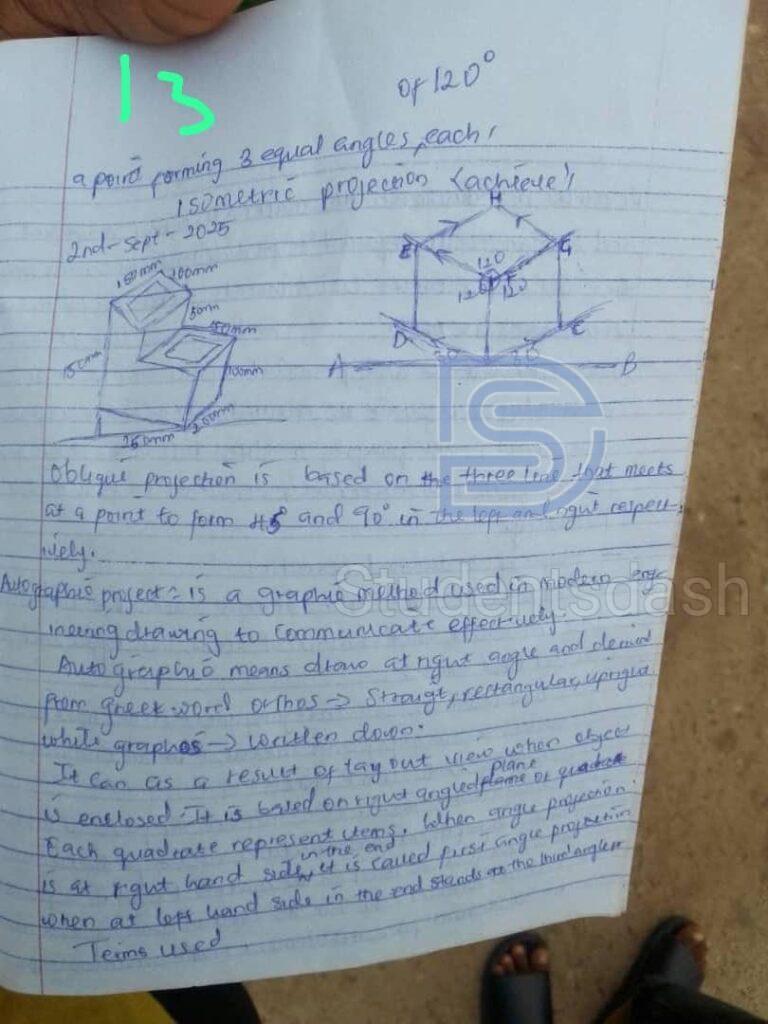 13
of 120°
a point forming 3 equal angles, each,
Isometric projection (achieve)
2nd-Sept-2025
H
E
G
120
F
120
120
D
C
A
B
150mm
100mm
50mm
150mm
100mm
200mm
250mm
Oblique projection is based on the three line that meets
at a point to form 45° and 90° in the left and right respect-
ively.
Autographic project = is a graphic method used in modern eng-
ineering drawing to communicate effectively.
Autographic means draw at right angle and
from greek word orthos → Straugt, rectangular, upright
while graphos → written down.
It can as a result of lay out view when object
is enclosed. It is based on right angled plane or
plane
Each quadrate represent items. When angle projection
is at right hand side, it is called first angle projection
in the end
when at left hand side in the end stands as the third angle
Terms used
Studentsdash